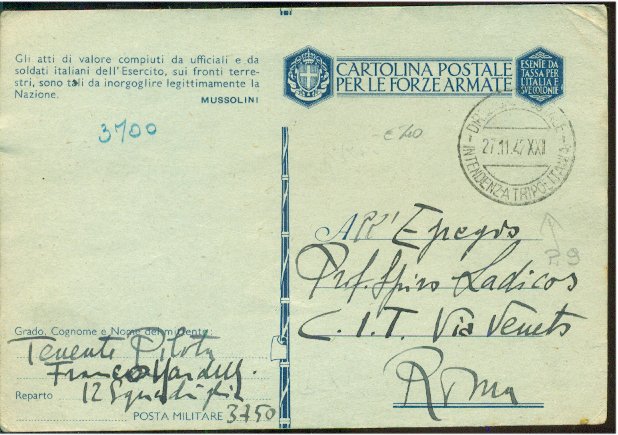 Gli atti di valore compiuti da ufficiali e da
soldati italiani dell'Esercito, sui fronti terre-
stri, sono tali da inorgoglire legittimamente la
Nazione.
MUSSOLINI
CARTOLINA POSTALE
PER LE FORZE ARMATE
ESENTE DA
TASSA PER
L'ITALIA E
SUE COLONIE
3700
INTENDENZA TRIPOLITANIA
27.11.42 XXI
All' Egregio
Prof. Spiro Ladicos
C.I.T. Via Veneto
Roma
Grado, Cognome e Nome del mittente:
Tenente Pilota
Franco
Reparto 12 Squadriglia
POSTA MILITARE 3750